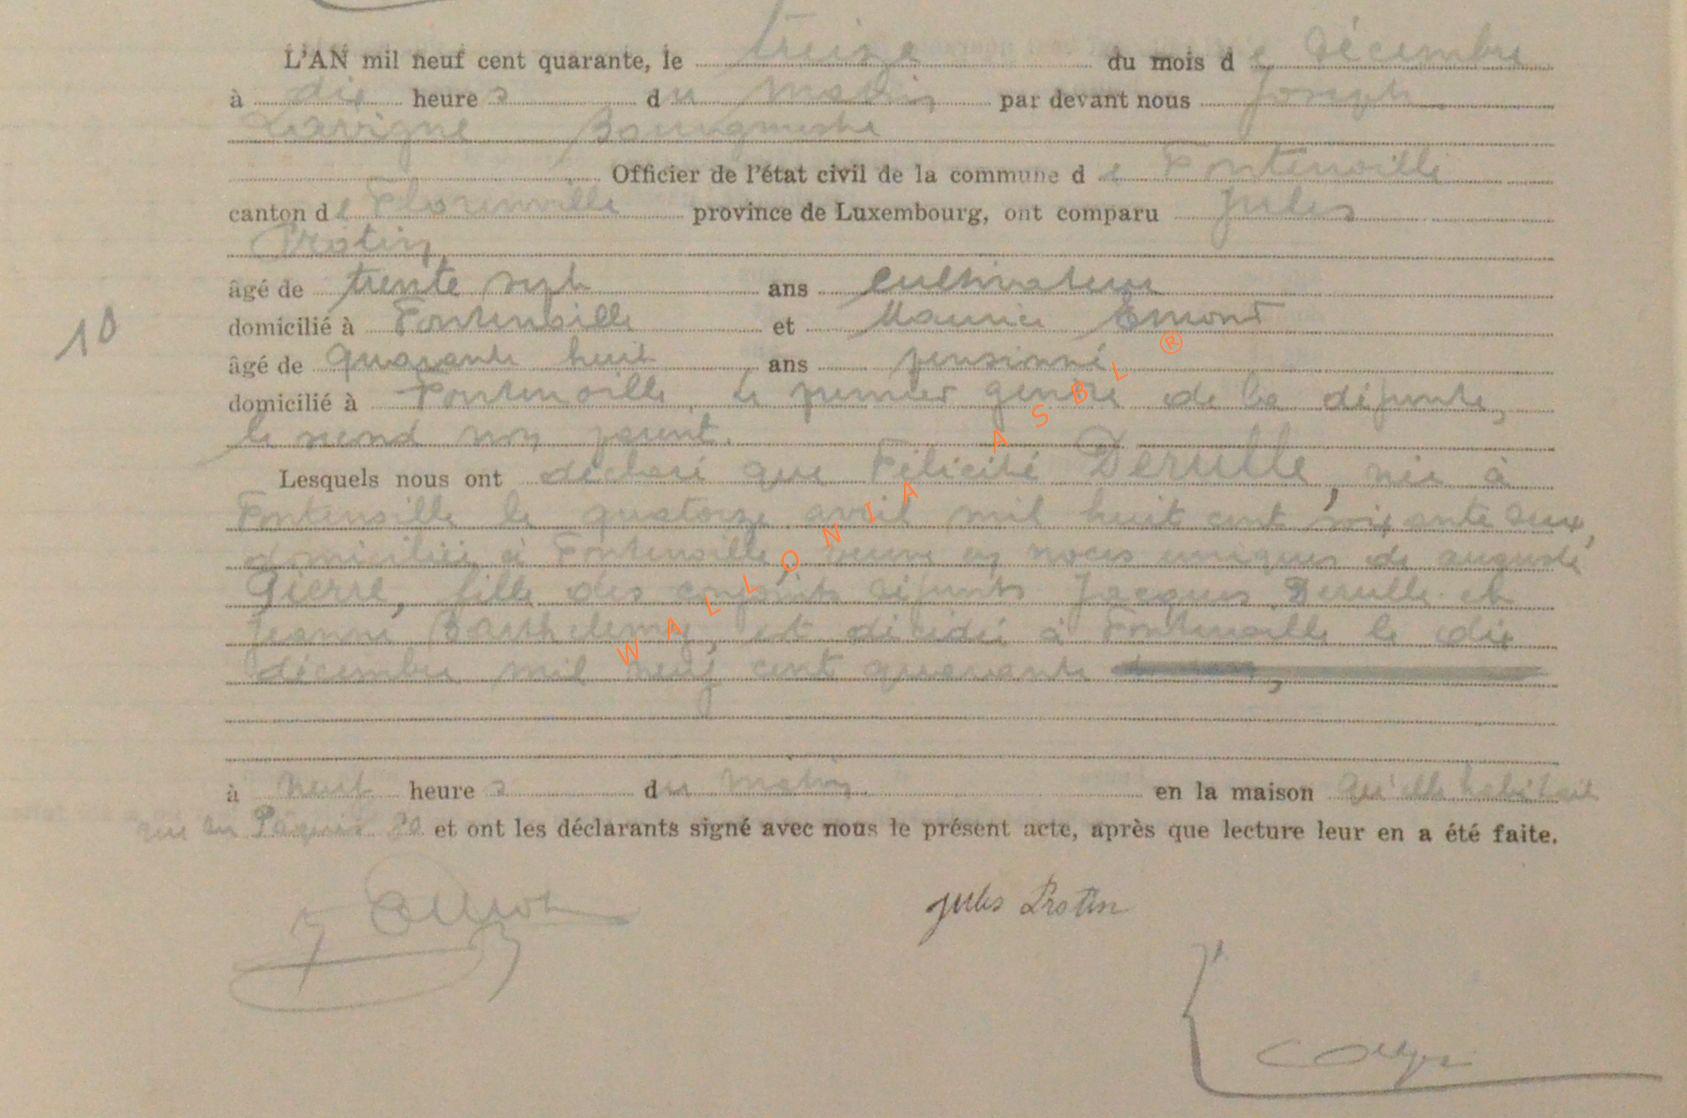 L'AN mil neuf cent quarante, le treize du mois de Décembre
à dix heures du matin par devant nous Joseph
Lavigne Bourgmestre
Officier de l'état civil de la commune de Fontenoille
canton de Florenville province de Luxembourg, ont comparu Jules
Protin
âgé de trente sept ans cultivateur
domicilié à Fontenoille et Maurice Emond
10
âgé de quarante huit ans pensionné
domicilié à Fontenoille, le premier gendre de la défunte,
le second non parent.
Lesquels nous ont déclaré que Félicité Derulle, née à
Fontenoille le quatorze avril mil huit cent soixante deux,
domiciliée à Fontenoille, veuve en noces uniques de auguste
Pierre, fille des conjoints défunts Jacques Derulle et
Jeanne Barthelemy, est décédée à Fontenoille le dix
décembre mil neuf cent quarante,
à neuf heures du matin en la maison qu'elle habitait
rue du Paquis 20 et ont les déclarants signé avec nous le présent acte, après que lecture leur en a été faite.
Jules Protin
WALLONIA ASBL ®